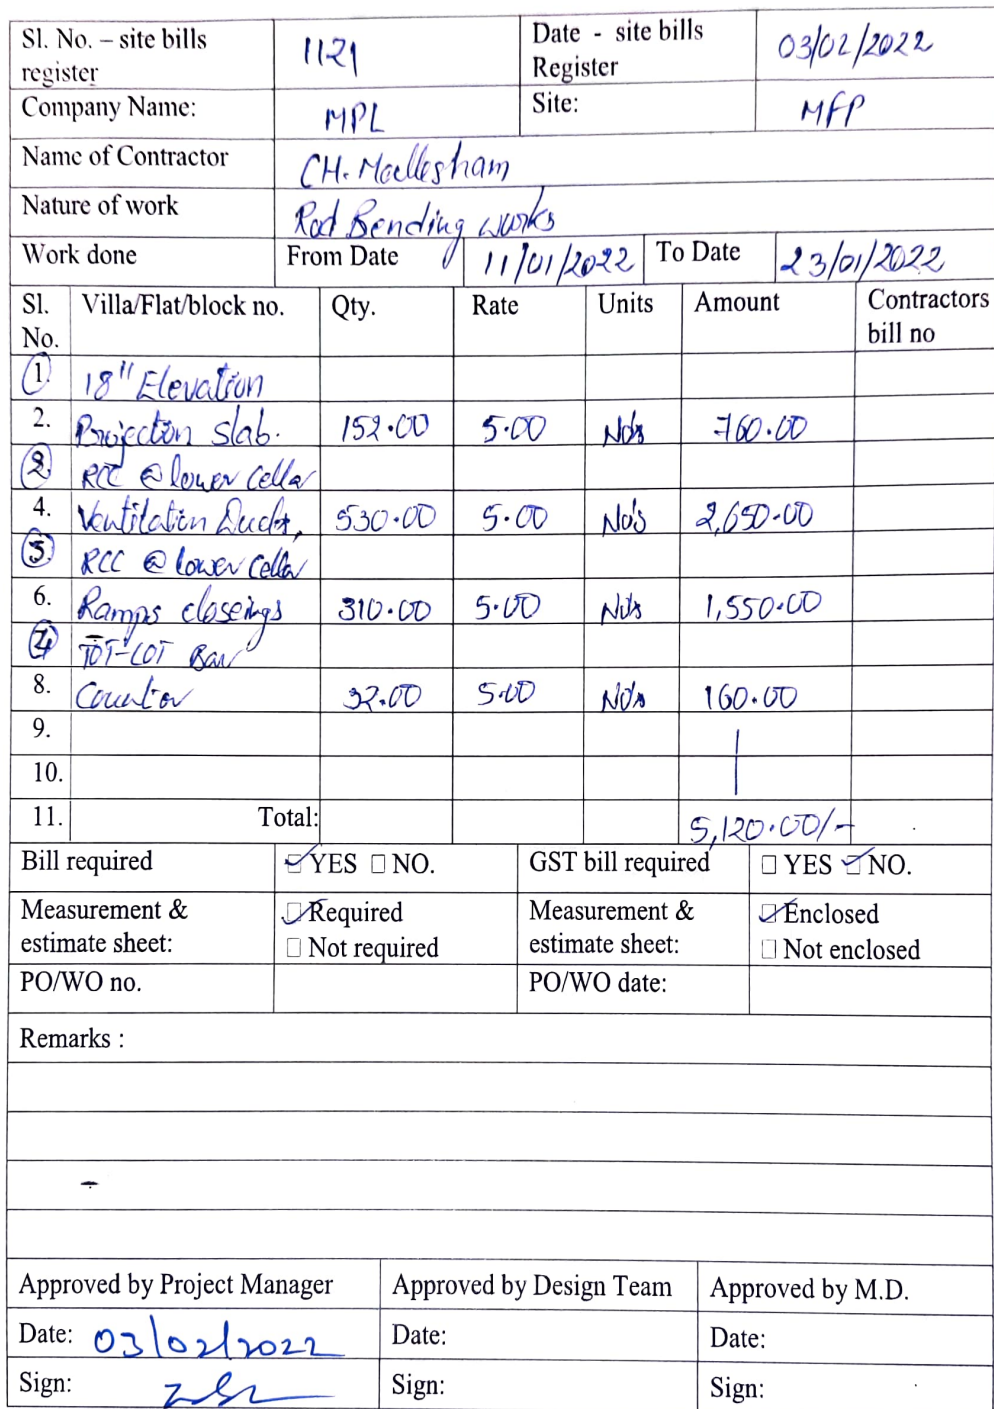 Sl. No. – site bills register 1121 Date - site bills Register 03/02/2022
Company Name: MPL Site: MFP
Name of Contractor CH. Mallesham
Nature of work Rod Bending works
Work done From Date 11/01/2022 To Date 23/01/2022
Sl. No. Villa/Flat/block no. Qty. Rate Units Amount Contractors bill no
1. 18" Elevation
2. Projection slab. 152.00 5.00 No's 760.00
2. RCC @ lower Cellar
4. Ventilation Ducts, 530.00 5.00 No's 2,650.00
3. RCC @ lower Cellar
6. Ramps closeings 310.00 5.00 No's 1,550.00
4 TOT-LOT Bar
8. Counter 32.00 5.00 No's 160.00
9.
10.
11. Total: 5,120.00/-
Bill required YES NO. GST bill required YES NO.
Measurement & estimate sheet: Required Not required Measurement & estimate sheet: Enclosed Not enclosed
PO/WO no. PO/WO date:
Remarks :
Approved by Project Manager Approved by Design Team Approved by M.D.
Date: 03/02/2022 Date: Date:
Sign: Sign: Sign: